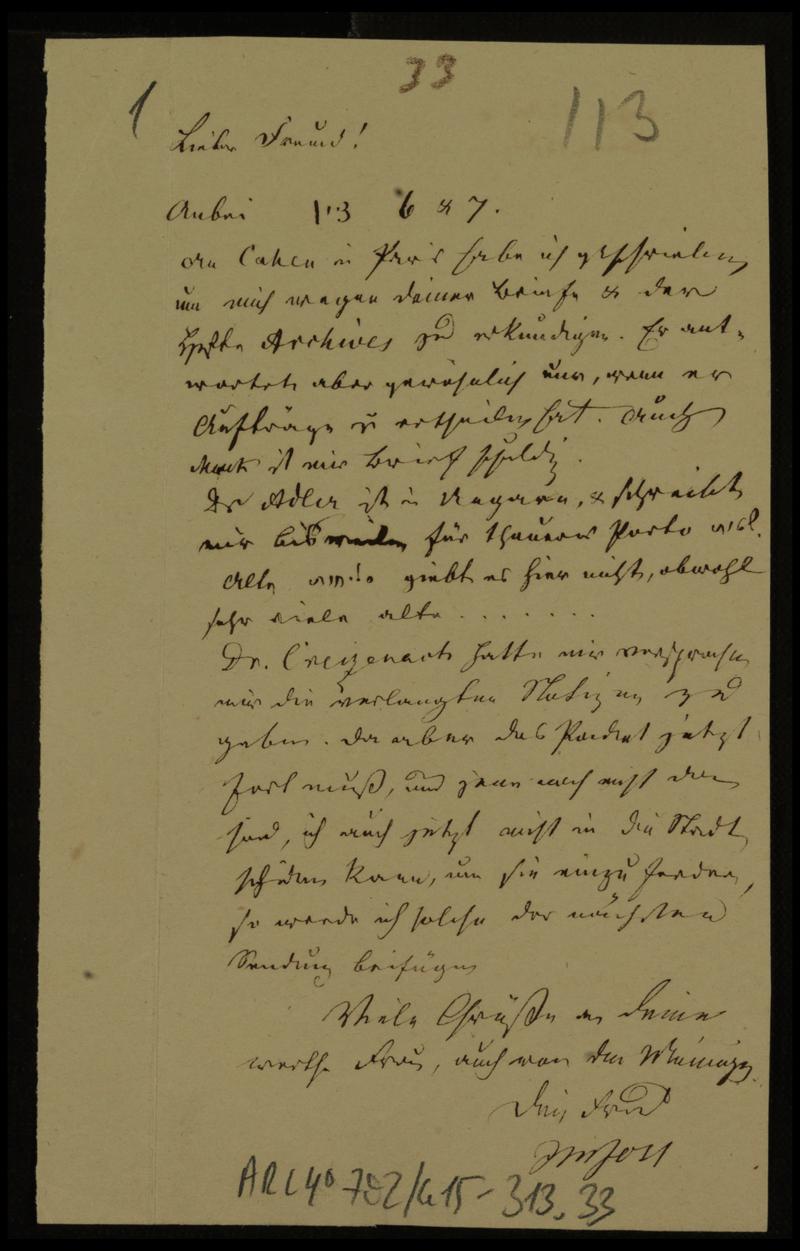 33
1
113
Lieber Freund!
Anbei 6 & 7.
An Cahen in Paris habe ich geschrieben,
um mich wegen deiner Briefe & der
Hefte Archives zu erkundigen. Er ant-
wortet aber gewöhnlich nur, wenn er
Aufträge zu ertheilen hat. Auch
ist mir Brief schuldig.
Dr Adler ist in Ungarn, & schreibt
mir bisweilen für theueres Porto
Alte giebt es hier nicht, obwohl
sehr viele alte . . . . . . .
Dr. Creizenach hatte mir versprochen
mir die verlangten Notizen zu
geben. Da aber das Packet jetzt
fort muß, und jene noch nicht da
sind, ich auch jetzt nicht in die Stadt
schicken kann, um sie einzufordern,
so werde ich solche der nächsten
Sendung beifügen
Viele Grüße an deine
werthe Frau, auch von der Meinigen.
Dein Freund
Jost
ARC 4° 792/G15-313.33